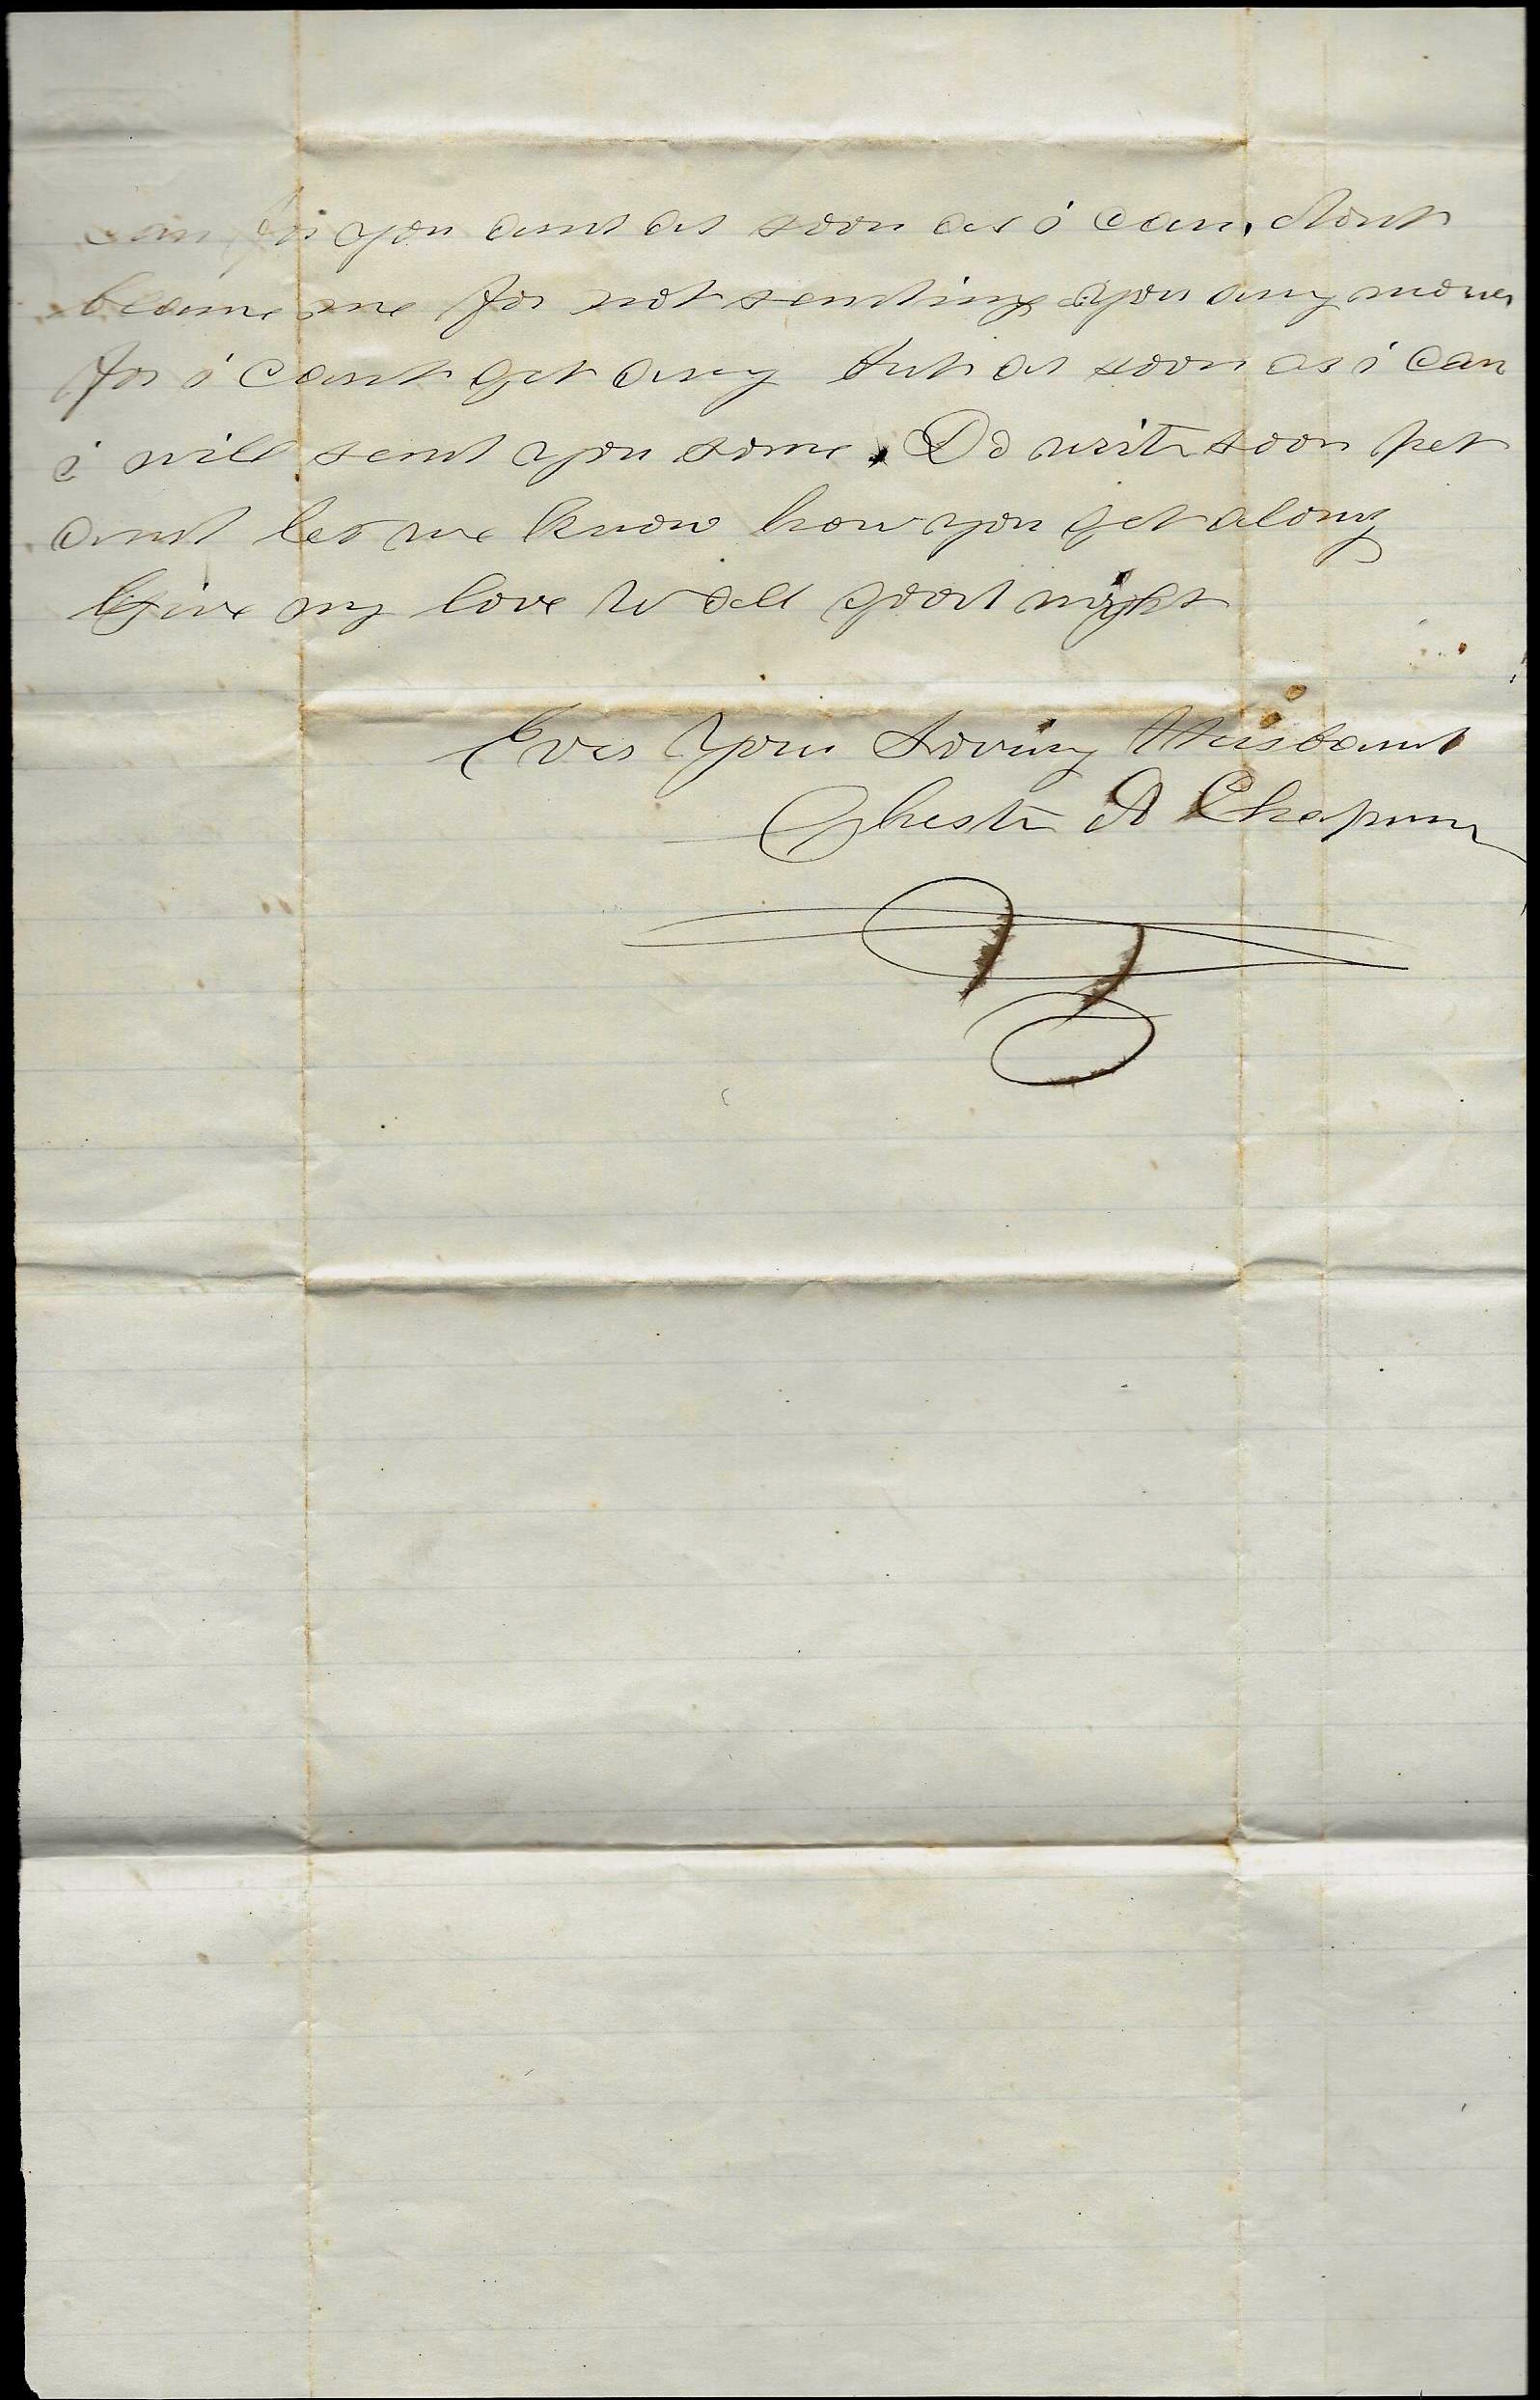 can for you and as soon as i can, dont
blame me for not sending you any money
for i cant get any but as soon as i can
i will send you some. Do write soon pet
and let me know how you get along
Give my love to all good night
Ever Your Loving Husband
Chester A Chapman